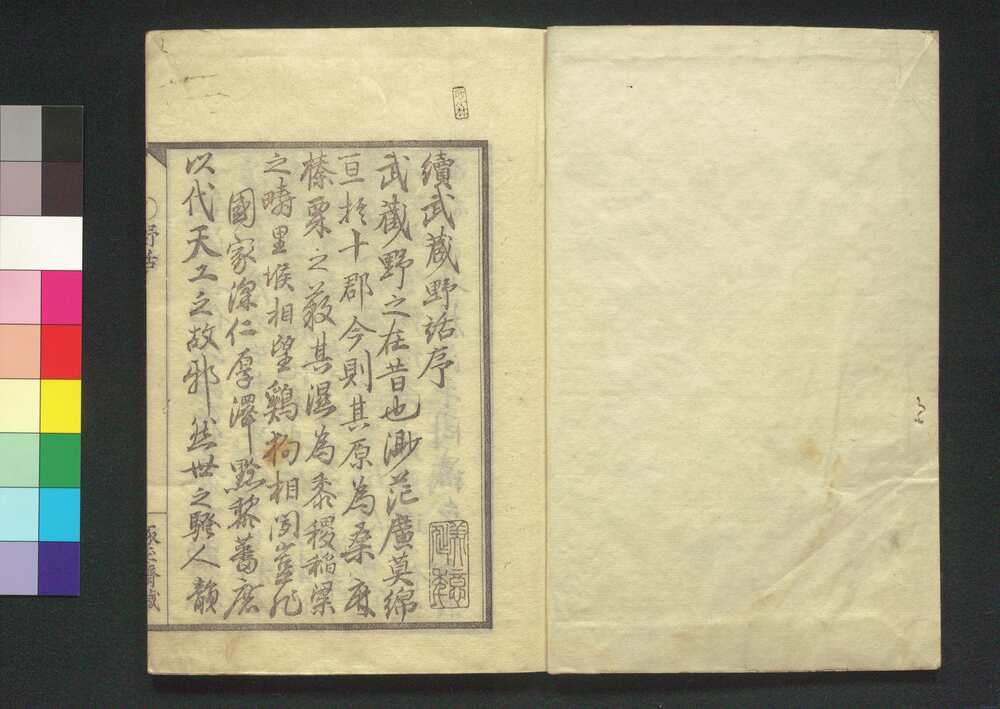 續武蔵野話序
武蔵野之在昔也渺茫廣莫綿
亘於十郡今則其原為桑麻
榛栗之薮其濕為黍稷稲梁
之疇里堠相望鷄狗相聞豈非
國家深仁厚澤黔黎蕃庶
以代天工之故邪然世之騒人韻
野話